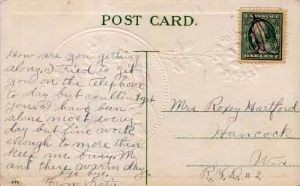 POST CARD.
How are you getting
along, I tried to get
you on the telephon
to day but couldn't get
you. I have been
alone most every
day but find work
enough to more then
keep me busy.
and there warm day
go bye.
From
Mrs Roxey Hartford
Hancock
Wis.
R.F.D. #2